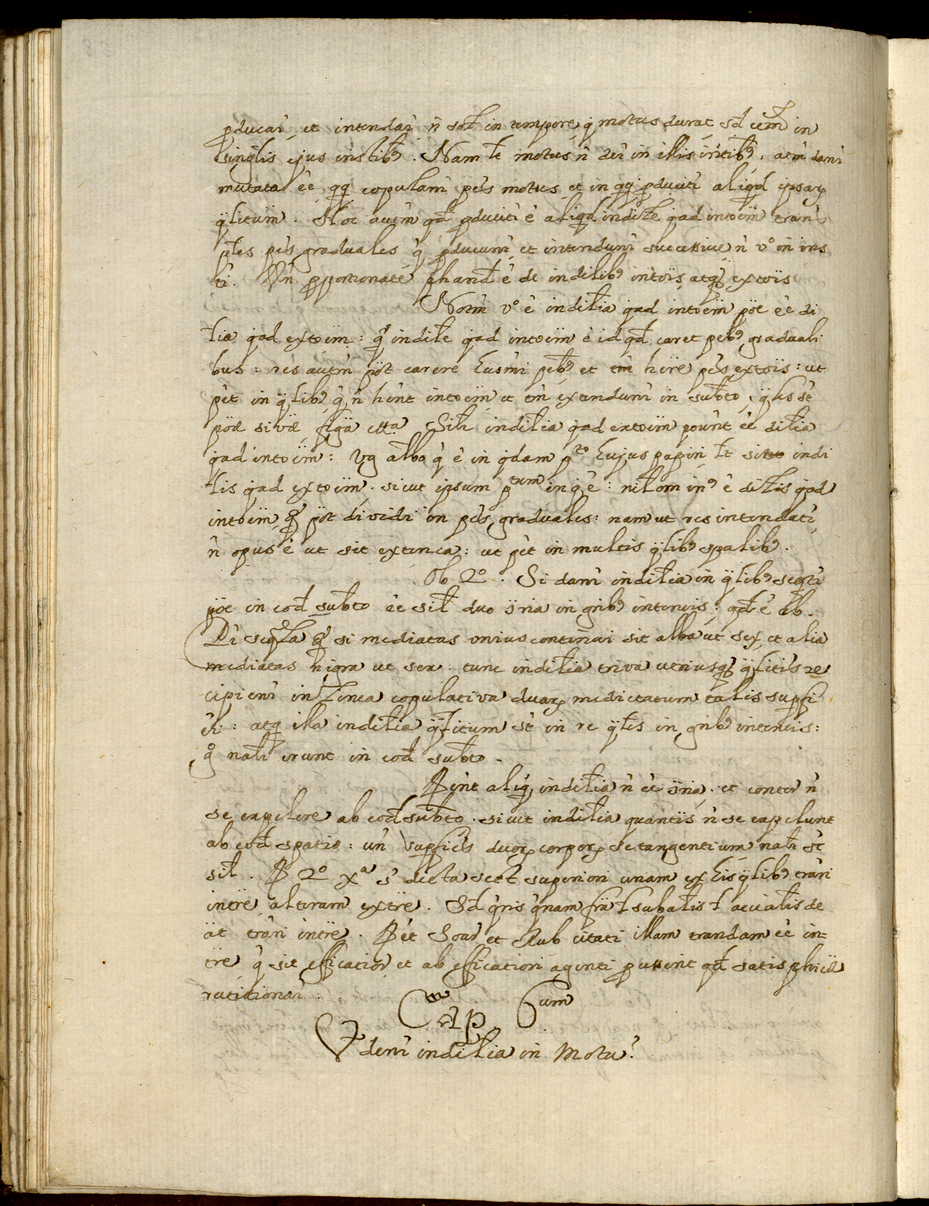 pducari et intendari ñ sol in tempore q̃ motus durat sd etm̃ in
singlis ejus instib9. Nam tt motus ñ det in illis intib9, atm̃ dant
mutata ẽe qq copulant ptes motus et in qq pducit aliqd ipsar
qlitum. Hoc autm̃ qd pducit ẽ aliqd indile qad intoem̃
ptes graduales q̃ pducunt et intendunt successive ñ v.º in ins
ti. Un̄ pportionate phand ẽ de indilib9 intois atq extois
Notm̃ v.º ẽ indiltia qad intoem̃ pot ẽe di
tia qad extoem̃: qa indile qad intoem̃ ẽ id qd caret ptib9 graduali
bus: res autm̃ pot carere hujsmi ptib9 et tm̃ hẽre ptes extois: ut
pet in qlib9 q̃ ñ hent intoem̃ et tm̃ extendunt in subto, qles st
potæ sivæ figa etta. Sili indiltia qad extoem̃ pount ẽe diltia
qad intoem̃: Vg alba q̃ ẽ in qdam pto hujus papiri tt indi
tlis qad extoem̃. sicut ipsum ptum in q ẽ: nilom in9 ẽ ditlis qad
intoem̃ qa pot dividi in ptes graduales: nam ut res intendati
ñ opus ẽ ut sit extenca: ut pet in multis qlib9 spalib9.
Ob 2º. Si dant indiltia in qlib9 seqti
pot in eod subto ẽe sil duo ɔria in grib9 intencis: qd ẽ ab.
Di seqla qa si medietas unius continui sit alba ut sex, et alia
medietas nigra ut sex. tunc indiltia triva utriusq qlitis re
cipient in linea copulativa duar medietatum talis supfi
ei: atq illa indiltia qlitum st in re qles in grib9 intencis:
q nati erunt in eod subto.
Rent aliq indiltia ñ ẽe ɔria. et conter ñ
se expelere ab eod subto. sicut indiltia quantiis ñ se expelunt
ab eod spatio: un̄ supficies duor corpor se tangentium nati st
sil. R 2º xa s dicta sect superiori unam ex his qlib9 trari
intre alteram extre. Sd qris qnam
trari intre. Ret Soar et Rub citati illam trandam ẽe in=
tre q̃ sit efficatior et ab efficatiori agenti puenit qd satis phice
ratitionar.
Cap 6um
Vt dent indiltia in Motu?